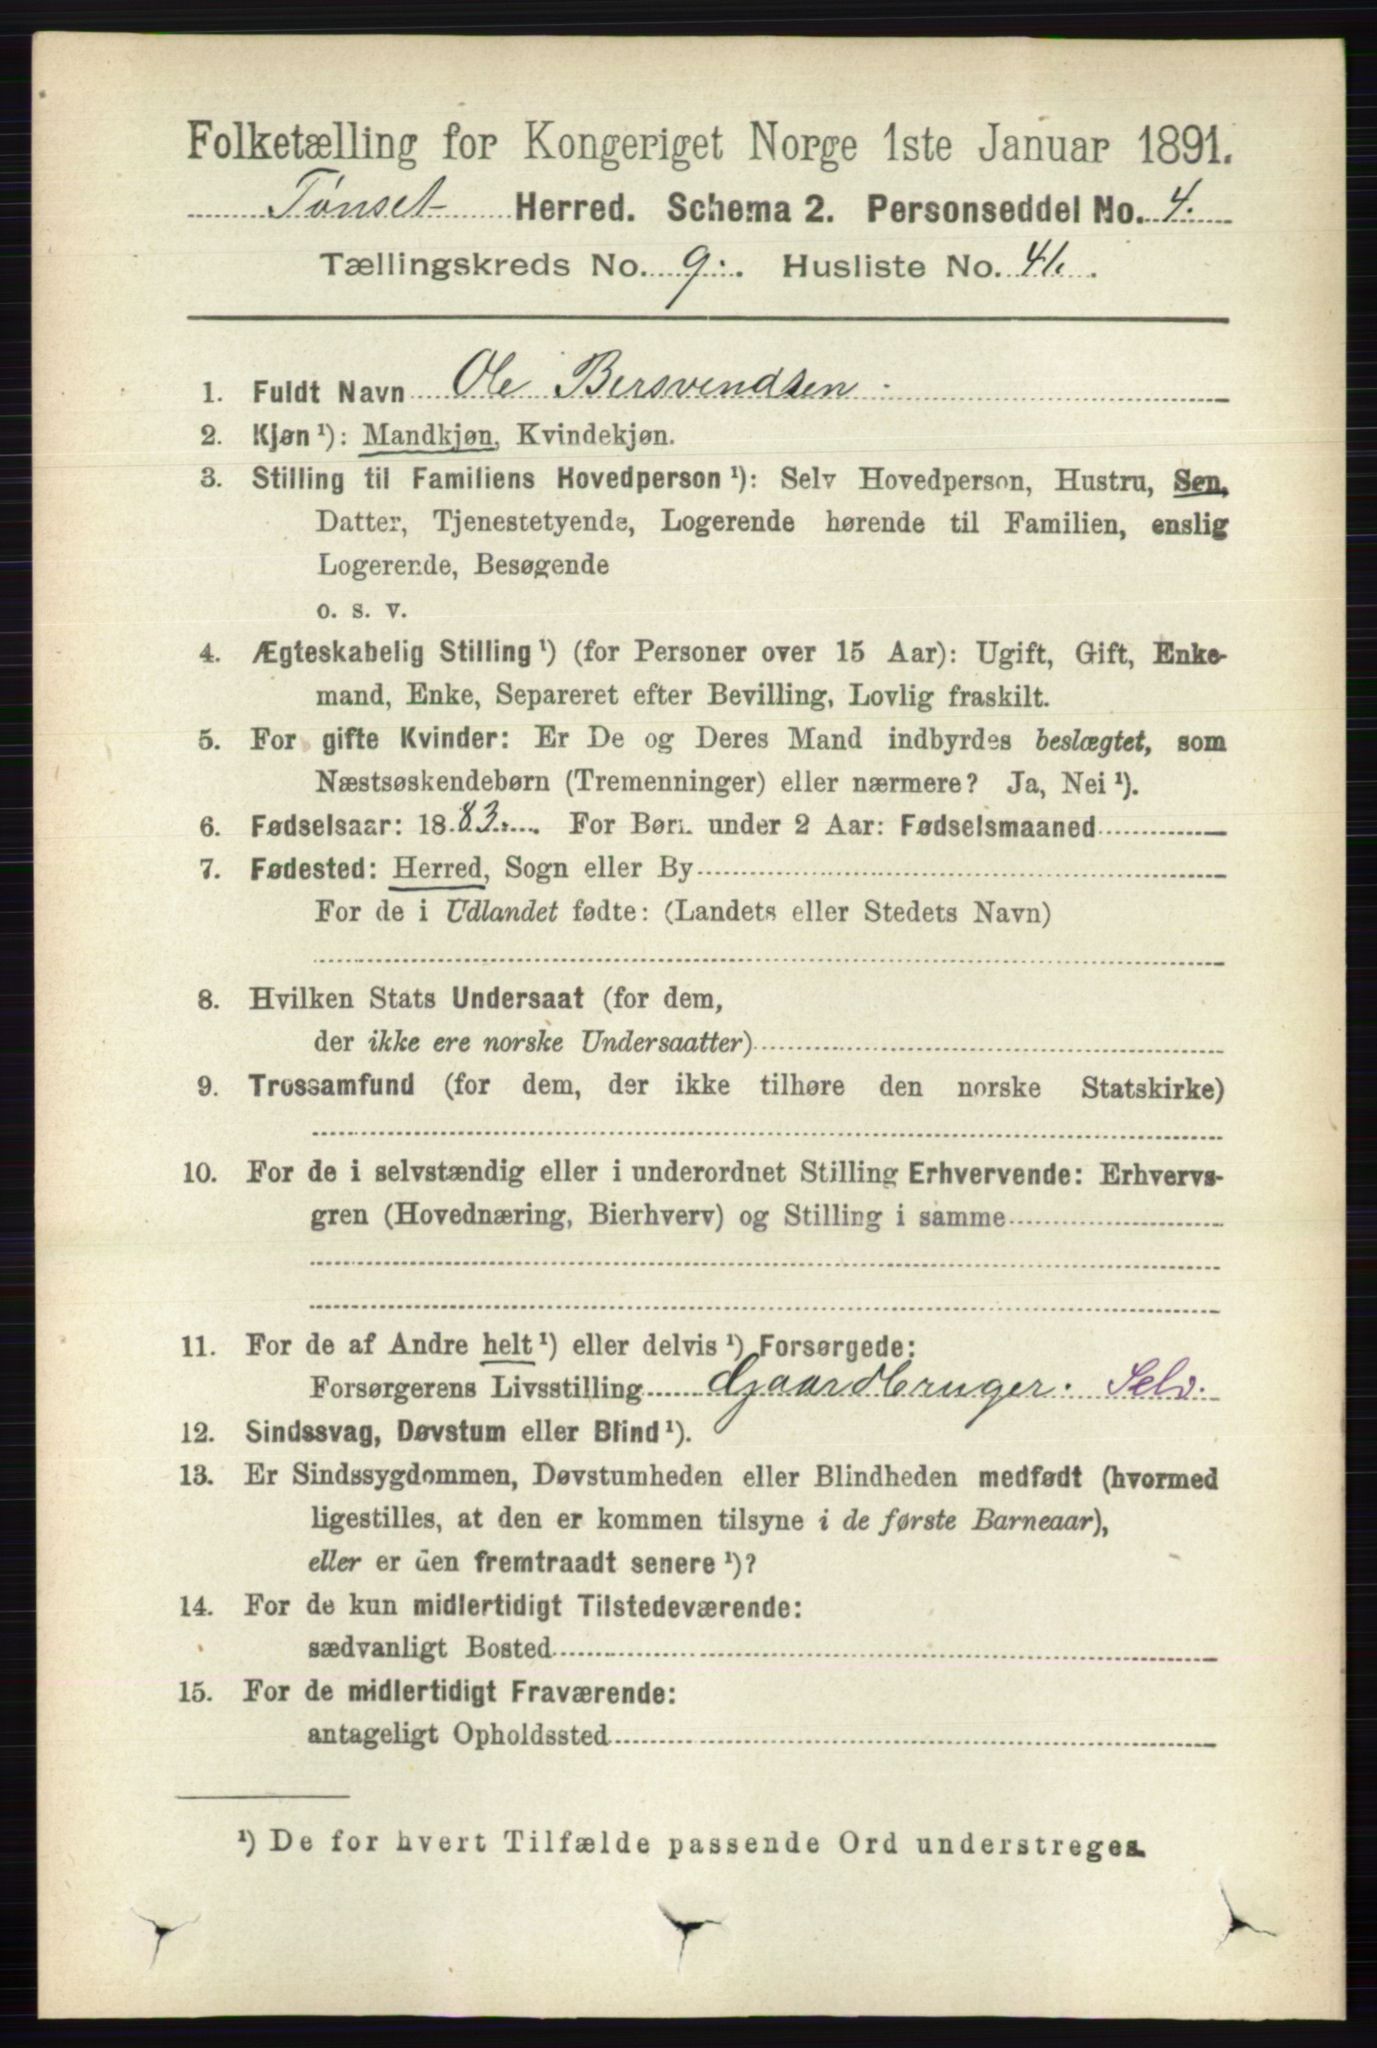 Folketælling for Kongeriget Norge 1ste Januar 1891.
Tønset Herred. Schema 2. Personseddel No. 4.
Tællingskreds No. 9. Husliste No. 41.
1. Fuldt Navn Ole Bersvendsen
2. Kjøn ¹): Mandkjøn, Kvindekjøn.
3. Stilling til Familiens Hovedperson ¹): Selv Hovedperson, Hustru, Søn,
Datter, Tjenestetyende, Logerende hørende til Familien, enslig
Logerende, Besøgende
o. s. v.
4. Ægteskabelig Stilling ¹) (for Personer over 15 Aar): Ugift, Gift, Enke-
mand, Enke, Separeret efter Bevilling, Lovlig fraskilt.
5. For gifte Kvinder: Er De og Deres Mand indbyrdes beslægtet, som
Næstsøskendebørn (Tremenninger) eller nærmere? Ja, Nei ¹).
6. Fødselsaar: 1883. For Børn under 2 Aar: Fødselsmaaned
7. Fødested: Herred, Sogn eller By
For de i Udlandet fødte: (Landets eller Stedets Navn)
8. Hvilken Stats Undersaat (for dem,
der ikke ere norske Undersaatter)
9. Trossamfund (for dem, der ikke tilhøre den norske Statskirke)
10. For de i selvstændig eller i underordnet Stilling Erhvervende: Erhvervs-
gren (Hovednæring, Bierhverv) og Stilling i samme
11. For de af Andre helt ¹) eller delvis ¹) Forsørgede:
Forsørgerens Livsstilling Gaardbruger. Selv.
12. Sindssvag, Døvstum eller Blind ¹).
13. Er Sindssygdommen, Døvstumheden eller Blindheden medfødt (hvormed
ligestilles, at den er kommen tilsyne i de første Barneaar),
eller er den fremtraadt senere ¹)?
14. For de kun midlertidigt Tilstedeværende:
sædvanligt Bosted
15. For de midlertidigt Fraværende:
antageligt Opholdssted
¹) De for hvert Tilfælde passende Ord understreges.